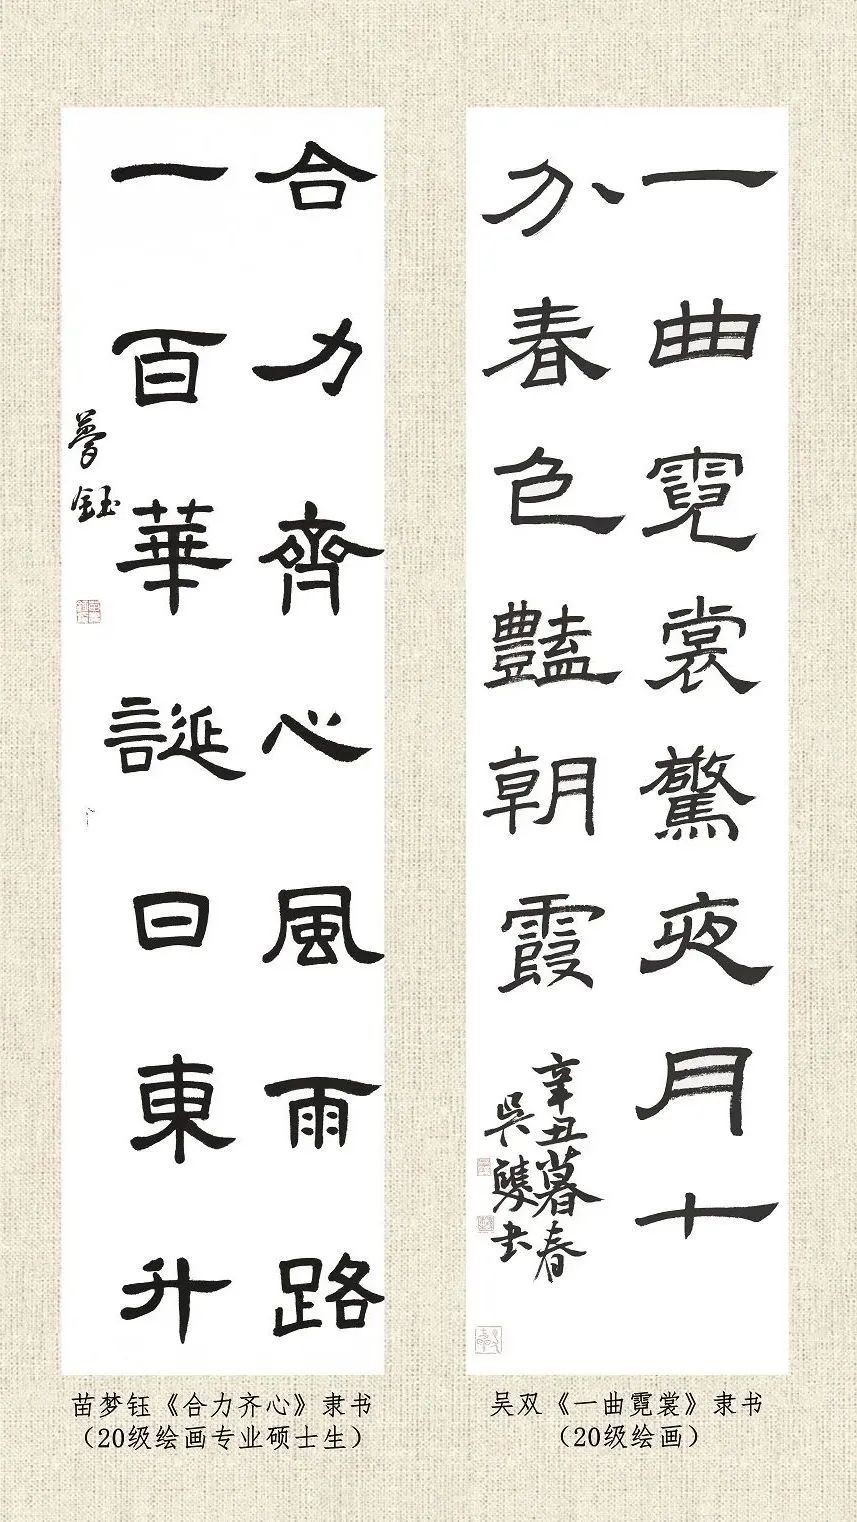 合力齊心風雨路
一百華誕日東升
夢鈺
一曲霓裳驚夜月十
分春色豔朝霞
辛丑暮春
吳雙书
苗梦钰《合力齐心》隶书
（20级绘画专业硕士生）
吴双《一曲霓裳》隶书
（20级绘画）